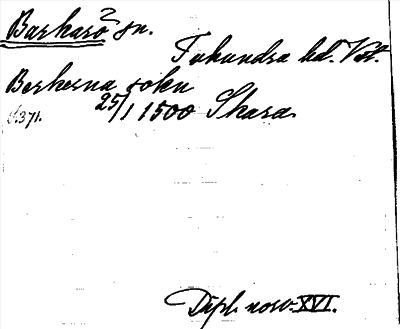 Barkarö 2 sn.
Tuhundra hd. Vstm.
Berkerna sokn
25/1 1500 Skara
s. 371.
Dipl. norv. XVI.